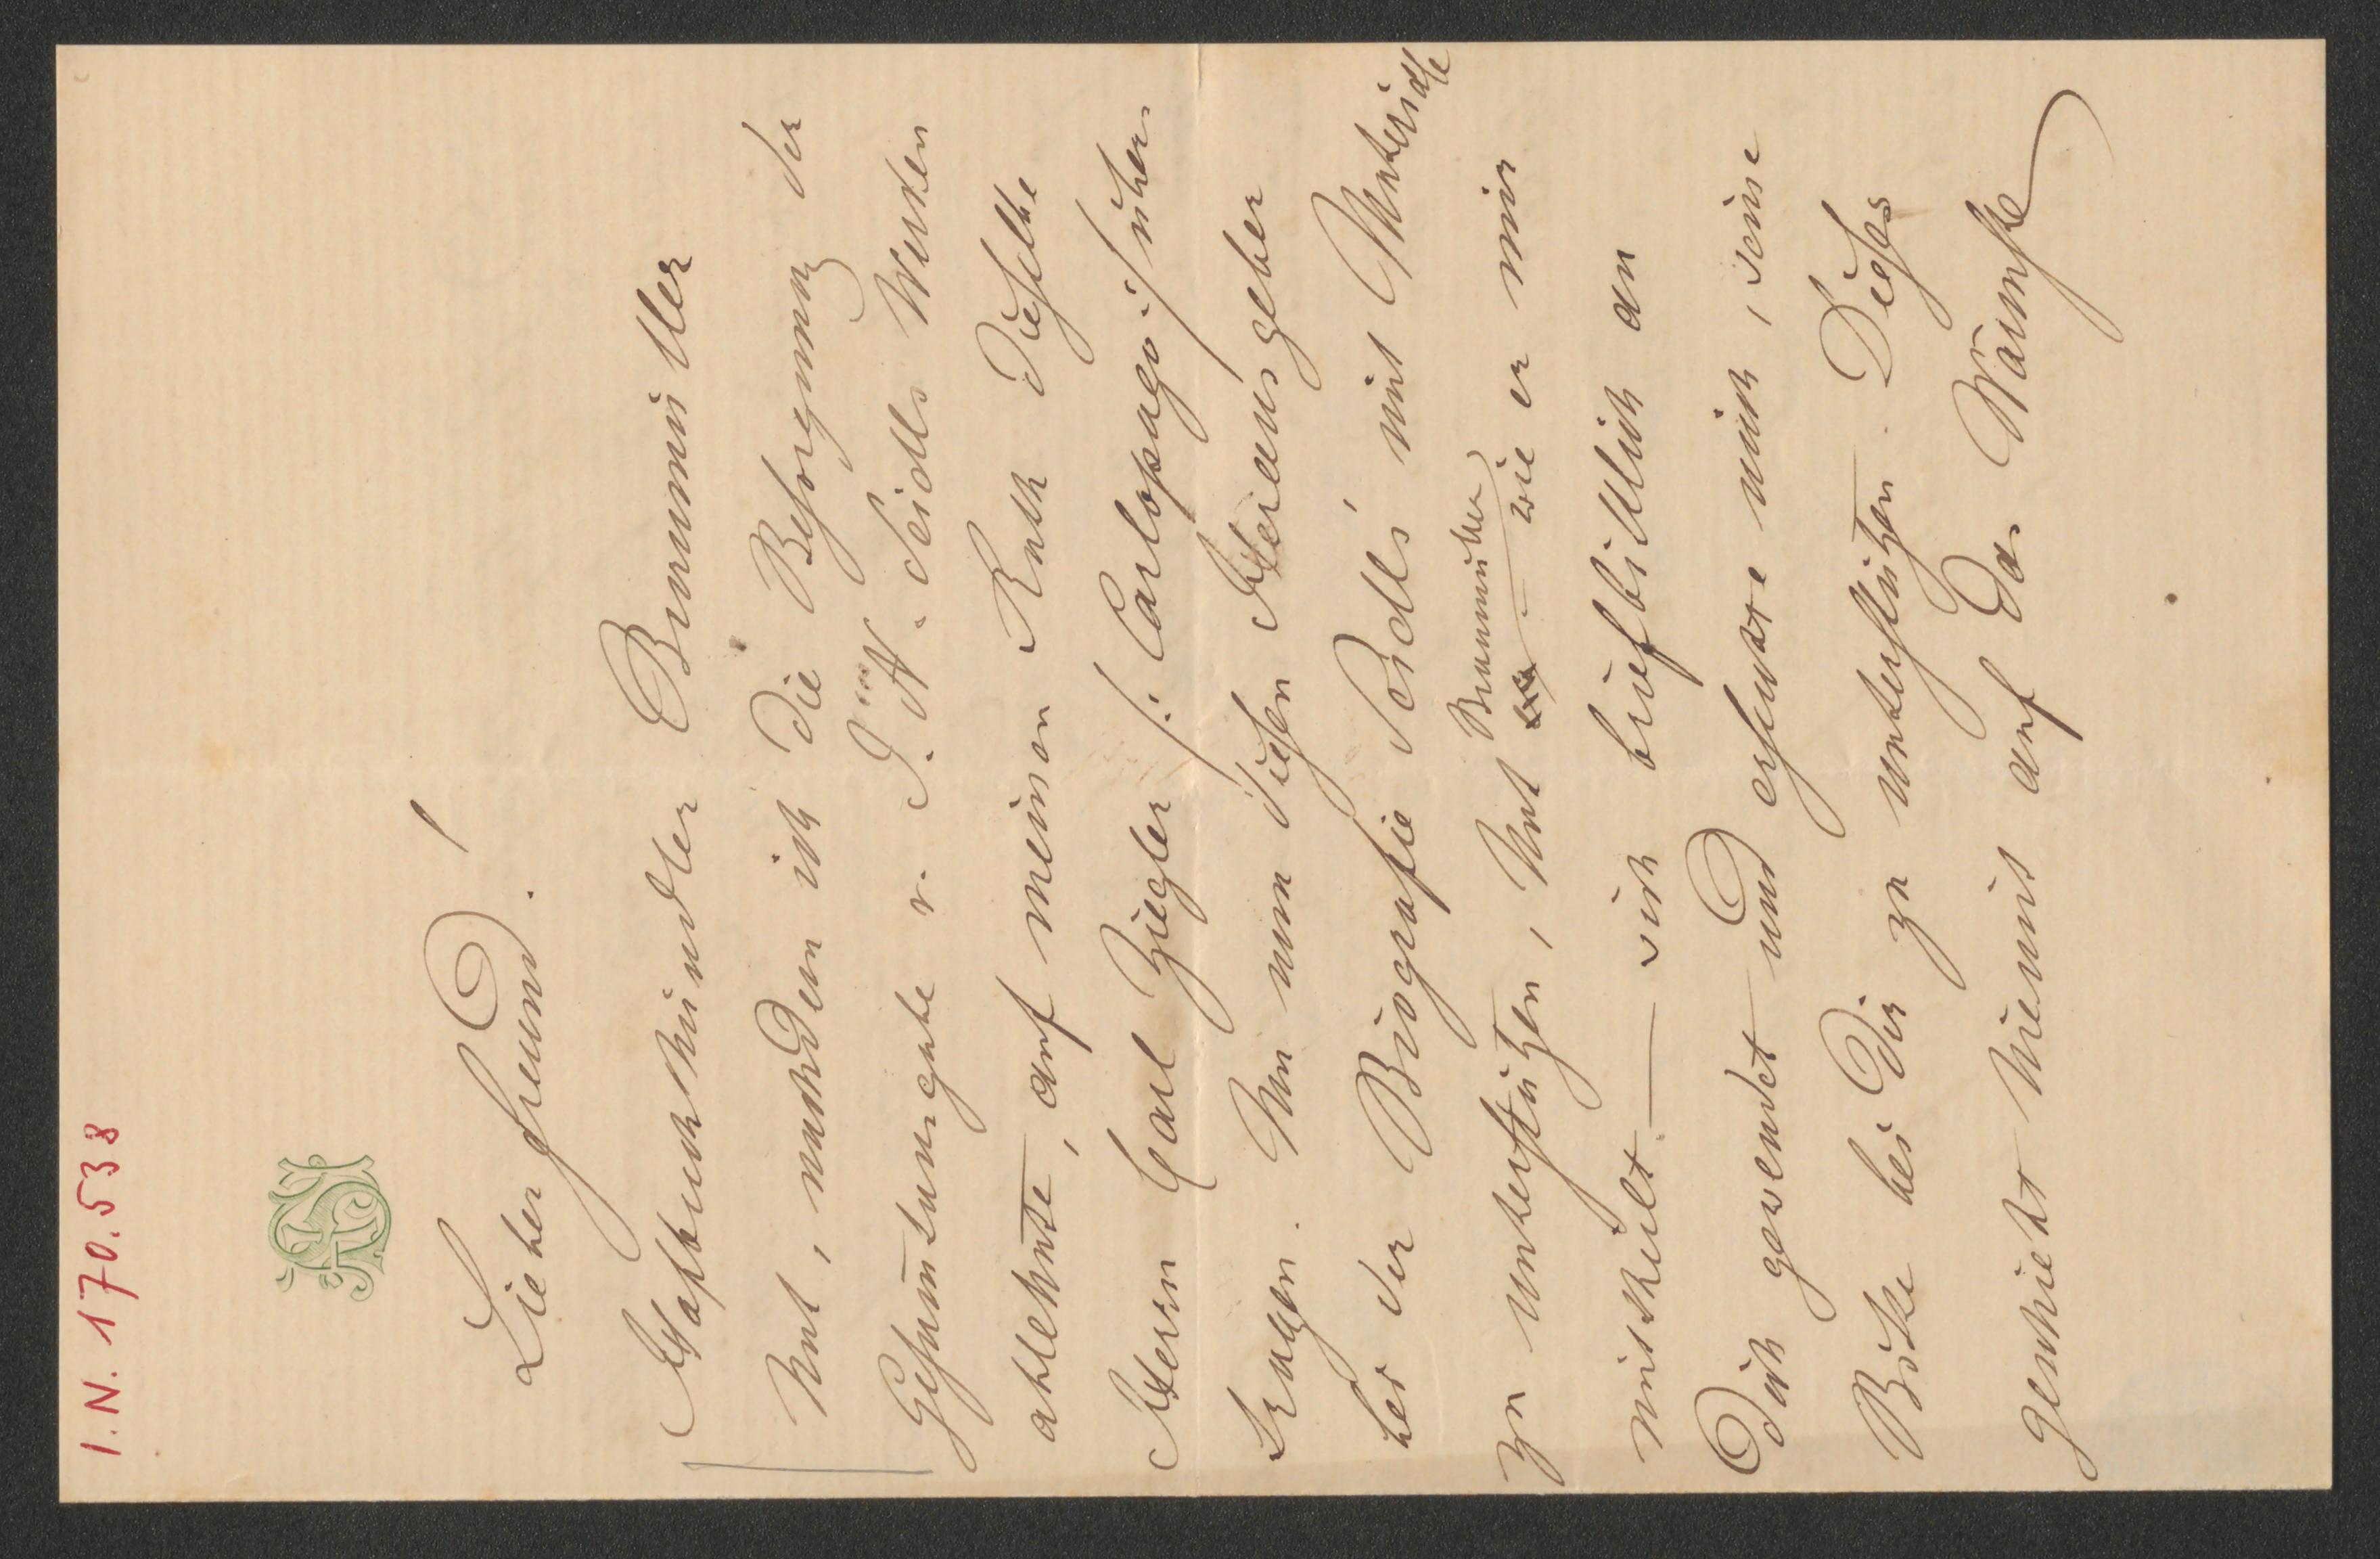 I.N. 170.538
AS
Lieber Freund!
Hofbuchhändler Braumüller
hat, nachdem ich die Besorgung der
Gesammtausgabe v. J. G. Seidls Werken
ablehnte, auf meinen Rath dieselbe
Herrn Carl Ziegler /: Carlopago :/ über-
tragen. Um nun diesen Herausgeber
bei der Biografie Seidls mit Materiale
zu unterstützen, hat Braumüller – wie er mir
mittheilt – sich brieflich an
Dich gewendet und ersuchte mich, seine
Bitte bei Dir zu unterstützen. Dieses
geschieht hiemit auf das Wärmste